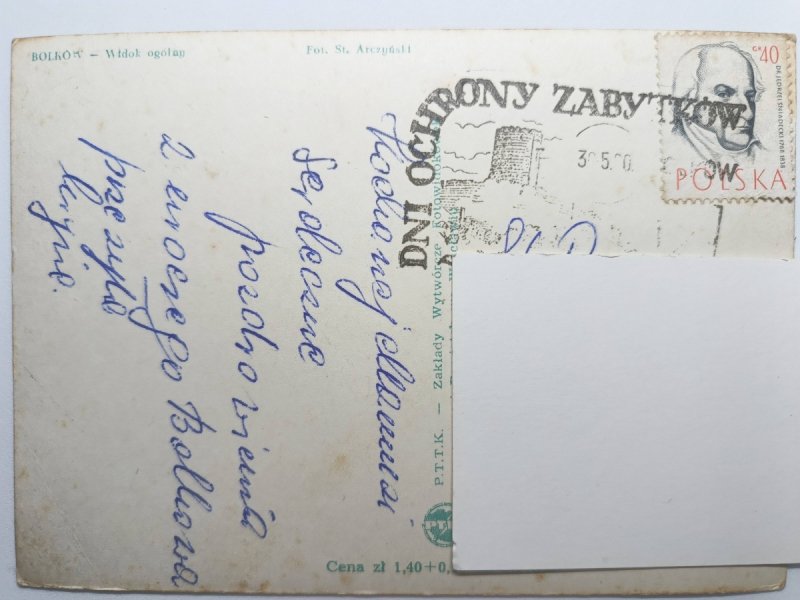 BOLKÓW — Widok ogólny
Fot. St. Arczyński
DNI OCHRONY ZABYTKÓW
40
DR JĘDRZEJ ŚNIADECKI 1768-1838
POLSKA
ÓW
Kochanej Mamusi
Serdeczne
pozdrowienia
z uroczego Bolkowa
przesyła
P.T.T.K. — Zakłady Wytwórcze
Cena zł 1,40+0,